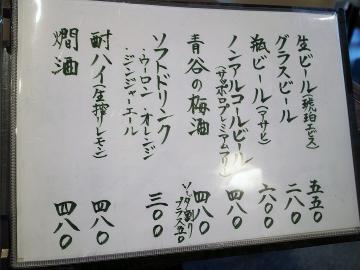 生ビール(琥珀ヱビス) 五五〇
グラスビール 二八〇
瓶ビール(アサヒ) 六〇〇
ノンアルコールビール(サッポロプレミアムフリー) 四八〇
青谷の梅酒 四八〇
ソーダ割りプラス五〇
ソフトドリンク 三〇〇
・ウーロン・オレンジ
・ジンジャーエール
酎ハイ(生搾りレモン) 四八〇
燗酒 四八〇